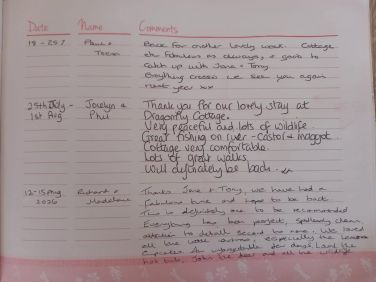 Date Name Comments
18-25 7 Paul + Back for another lovely week. Cottage
as fabulous as always, + good to
catch up with Jane + Tony.
crossed we see you again
next year xx
25th July - Jocelyn & Thank you for our lovely stay at
1st Aug Phil Dragonfly Cottage.
Very peaceful and lots of wildlife
Great fishing on river - Castor & maggot.
Cottage very comfortable.
Lots of great walks
Will definately be back.
12-15 Aug Richard + Thanks Jane + Tony, we have had a
Madelaine fabulous time and hope to be back.
This is definitely one to be recommended
Everything has been perfect, spotlessly clean
attention to detail second to none. We loved
all the especially the lemon
cupcakes. An unforgettable few days. Loved the
hot tub, the deer and all the wildlife